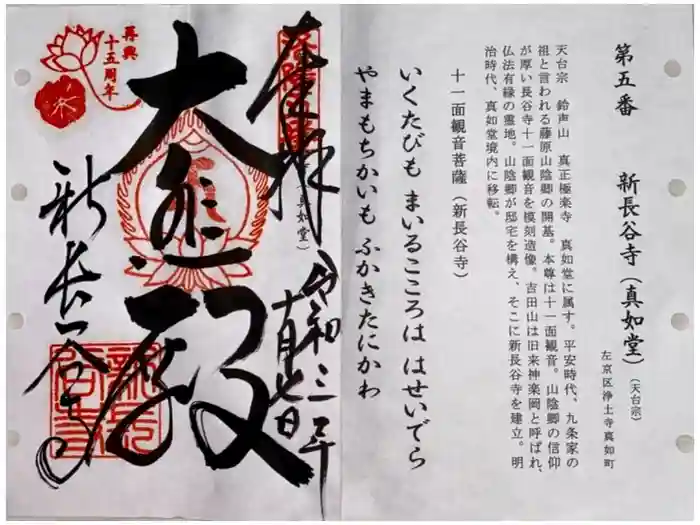 第五番　新長谷寺（真如堂）（天台宗）
左京区浄土寺真如町
天台宗　鈴声山　真正極楽寺　真如堂に属す。平安時代、九条家の
祖と言われる藤原山陰卿の開基。本尊は十一面観音。山陰卿の信仰
が厚い長谷寺十一面観音を模刻造像。吉田山は旧来神楽岡と呼ばれ、
仏法有縁の霊地。山陰卿が邸宅を構え、そこに新長谷寺を建立。明
治時代、真如堂境内に移転。
十一面観音菩薩（新長谷寺）
いくたびも　まいるこころは　はせいでら
やまもちかいも　ふかきたにかわ
奉拝
（真如堂）
令和三年
十月七日
大悲殿
新長谷寺
再興
十五周年